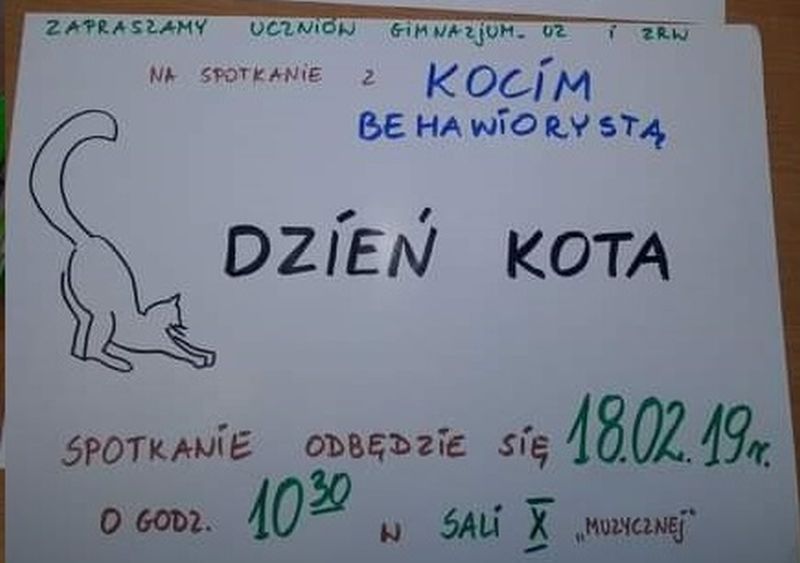 ZAPRASZAMY UCZNIÓW GIMNAZJUM. UZ i ZRW
NA SPOTKANIE Z KOCIM
BEHAWIORYSTĄ
DZIEŃ KOTA
SPOTKANIE ODBĘDZIE SIĘ 18.02.19r.
O GODZ. 10³⁰ W SALI X „MUZYCZNEJ"